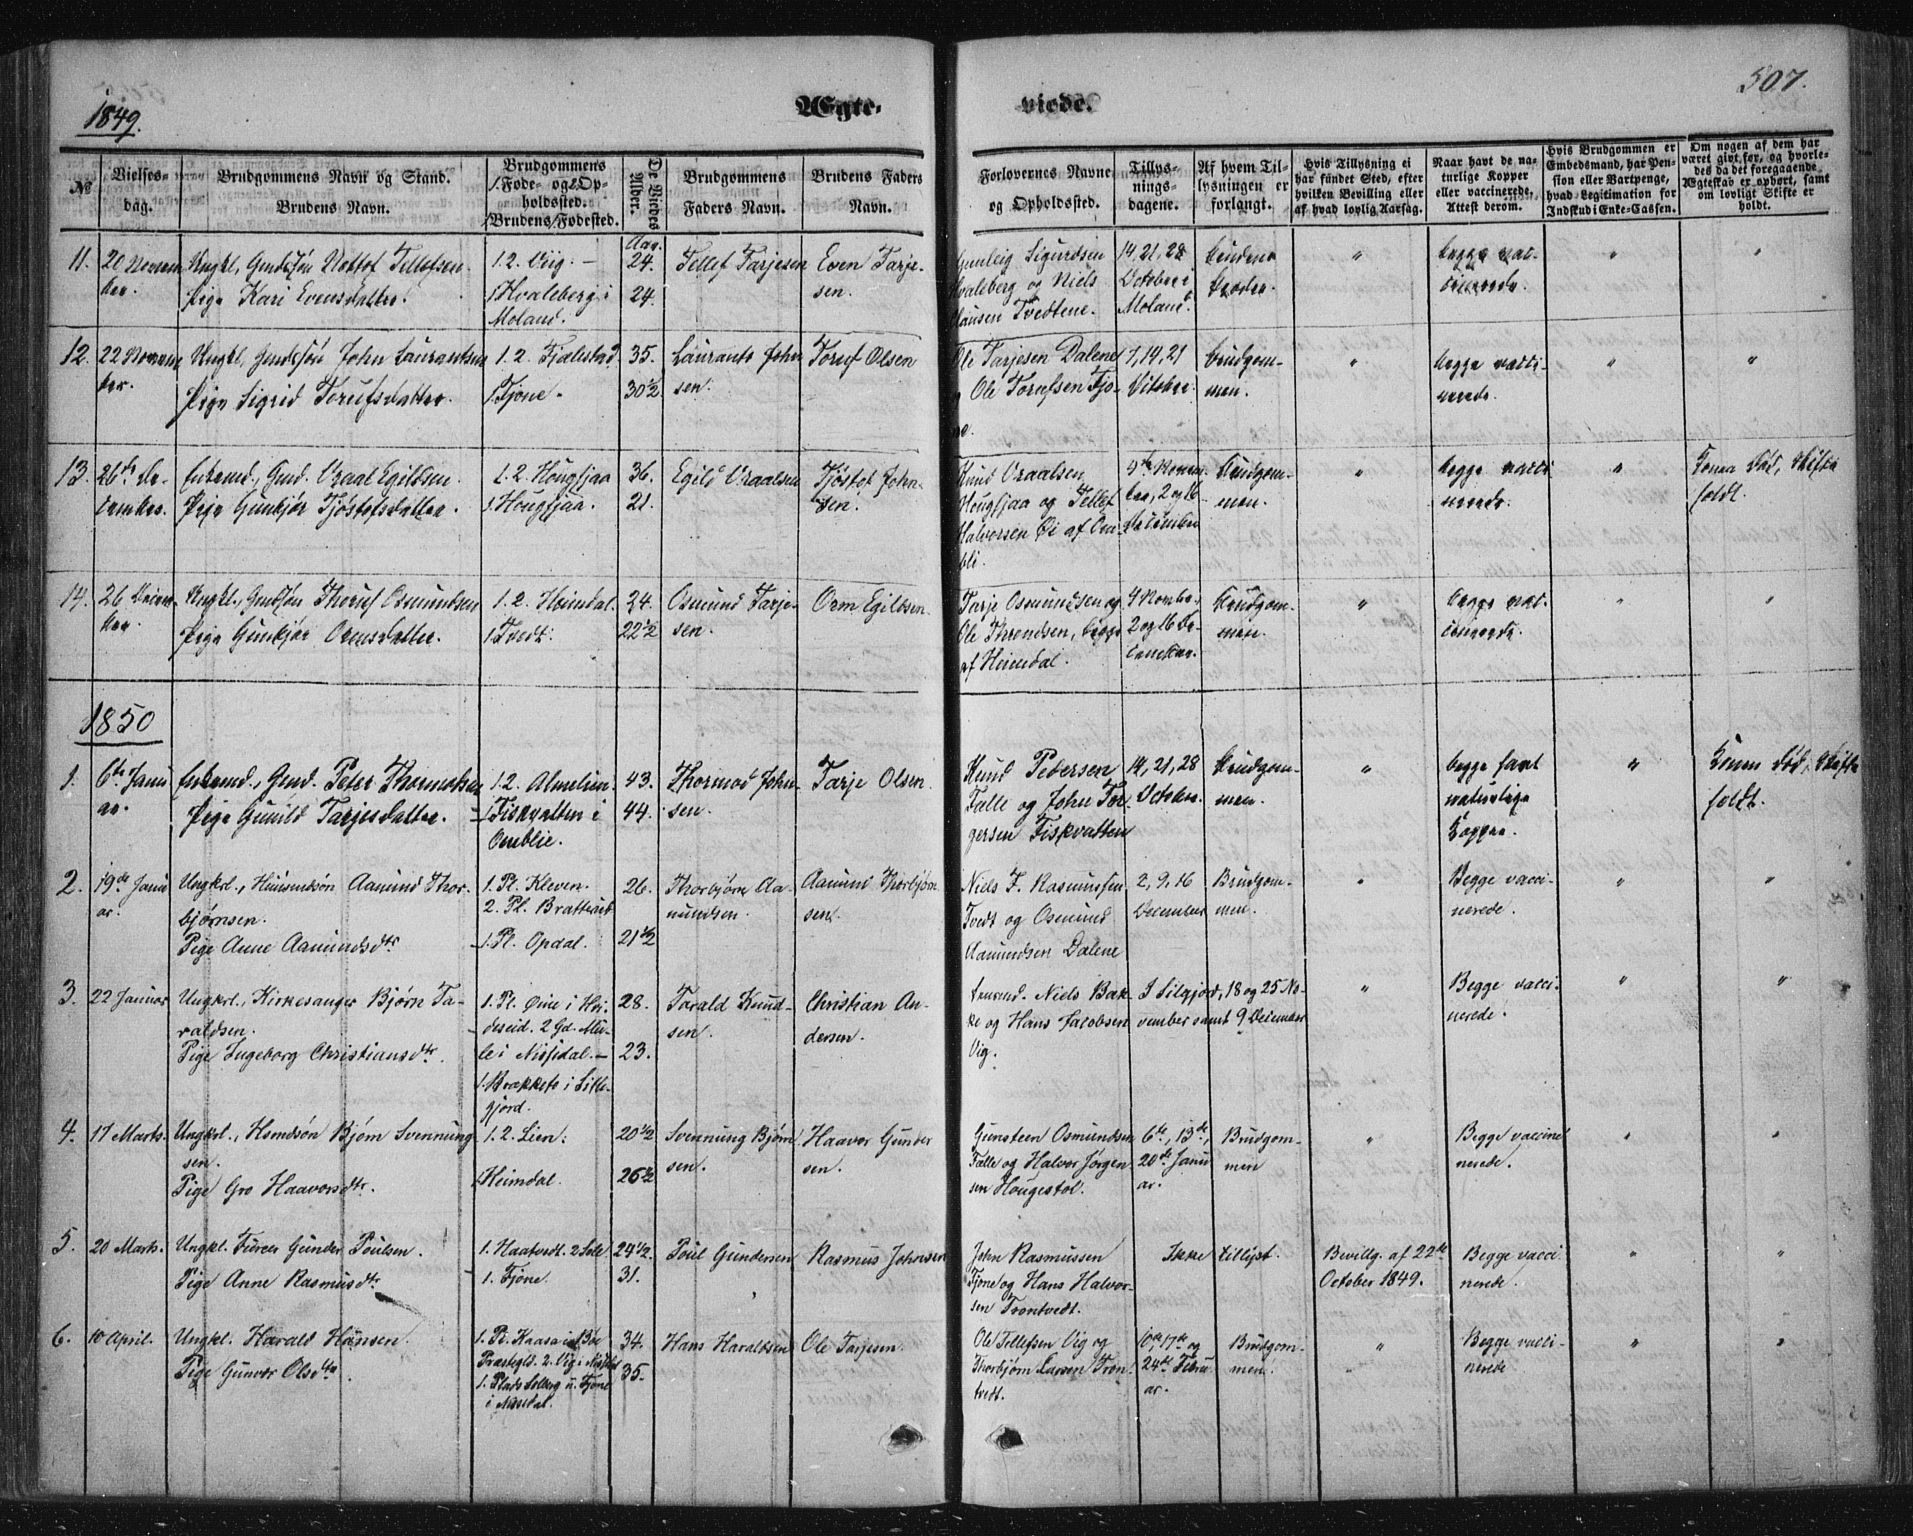 1849.
Ægte-
viede.
507.
№
Vielses-
dag.
Brudgommens Navn og Stand.
Brudens Navn.
Brudgommens
1. Føde- og 2. Op-
holdssted.
1. Brudens Fødested.
De Viedes
Alder.
Brudgommens
Faders Navn.
Brudens Faders
Navn.
Forlovernes Navne
og Opholdssted.
Tillys-
nings-
dagene.
Af hvem Til-
lysningen er
forlangt.
Hvis Tillysning ei
har fundet Sted, efter
hvilken Bevilling eller
af hvad lovlig Aarsag.
Naar havt de na-
turlige Kopper
eller vaccinerede,
Attest derom.
Hvis Brudgommen er
Embedsmand, har Pen-
sion eller Vartpenge,
hvad Legitimation for
Indskud i Enke-Cassen.
Om nogen af dem har
været gift før, og hvorle-
des da det foregaaende
Ægteskab er ophørt, samt
om lovligt Skifte er
holdt.
11. 20 Novem-
ber.
Ungkl., Gmdsøn Tellefsen
Pige Kari Evensdatter.
1. 2. Viig. –
1. Hvaleberg i
Moland.
Aar.
24.
24.
Tellef Tarjesen
Even Tarje-
sen.
Gunleig Sigurdsen
Hvaleberg og Niels
Hansen Tvedtene.
14, 21, 28
October i
Moland.
Brudens
Fader.
"
begge vac-
cinerede.
"
"
12. 22 Novem-
ber.
Ungkl., Gmdsøn John Laurantsen
Pige Sigrid Torufsdatter.
1. 2. Fjalestad
1. Fjone.
35.
30 1/2
Laurants John-
sen.
Toruf Olsen
Ole Tarjesen Dalene
Ole Torufsen Fjo-
ne.
7, 14, 21
October
Brudgom-
men.
"
begge vacci-
nerede.
"
"
13. 26de De-
cember.
Enkemd., Gmd. Vraal Egildsen.
Pige Gunhjør Tjøstofsdatter.
1. 2. Hougsjaa
1. Hougsjaa.
36.
21.
Egild Vraalsen
Tjøstof John-
sen.
Knud Vraalsen
Hougsjaa og Tellef
Halvorsen Øi af Om-
bli.
4de Novem-
ber, 2 og 16
December
Brudgom-
men.
"
begge vacci-
nerede.
"
Konen død, Skifte
holdt.
14. 26 Decem-
ber
Ungkl., Gmdsøn Thoruf Osmundsen
Pige Gunhjør Ormsdatter.
1. 2. Heimdal.
1. Tvedt.
24.
22 1/2
Osmund Tarje-
sen.
Orm Egildsen
Tarje Osmundsen og
Ole Throndsen, begge
af Heimdal.
4 Novembr.
2 og 16 De-
cember.
Brudgom-
men.
"
begge vac-
cinerede.
"
"
1850
1. 6te Janu-
ar.
Enkemd., Gmd. Peter Thormodsen
Pige Gunild Tarjesdatter.
1. 2.
1. Fiskvatten i
Omblie.
43.
44.
Thormod John-
sen.
Tarje Olsen.
Knud Pedersen
Falle og John Tor-
gersen Fiskvatten
14, 21, 28
October.
Brudgom-
men.
"
begge havt
naturlige
Kopper.
"
Konen død, Skifte
holdt.
2. 19de Janu-
ar.
Ungkrl., Huusmdsøn Aamund Thor-
bjørnsen.
Pige Anne Aamundsdtr
1. Pl. Kleven.
2. Pl. Bratterud
1. Pl. Opdal.
26.
21 1/2
Thorbjørn Aa-
mundsen.
Aamund Thorbjørn-
sen.
Niels F. Rasmussen
Tvedt og Osmund
Aamundsen Dalene
2, 9, 16
December
Brudgom-
men.
"
Begge vacci-
nerede.
"
"
3. 22 Januar
Ungkrl., Kirkesanger Bjørn Ta-
raldsen.
Pige Ingeborg Christiansdtr.
1. Pl. Øine i Hvi-
deseid. 2 Gd.
i Nissedal. –
1. Brækkebø i Sille-
gjord.
28.
23.
Tarald Knud-
sen.
Christian An-
dersen.
Niels Bak-
ke og Hans Jacobsen
Vig.
I Silgjord, 18 og 25 No-
vember samt 9 December
"
Begge vacci-
nerede.
"
"
4. 17 Marts.
Ungkrl., Hsmdsøn Bjørn Svennung-
sen.
Pige Gro Haavorsdtr.
1. 2. Lien.
1. Heimdal.
20 1/2
26 1/2
Svennung Bjørn-
sen.
Haavor Gunder-
sen.
Gunsteen Osmundsen
Falle og Halvor Jørgen-
sen Hougestøl.
6te, 13de,
20de Janu-
ar.
Brudgom-
men
"
Begge vacci-
nerede.
"
"
5. 20 Marts.
Ungkl. Gunder Poulsen.
Pige Anne Rasmusdtr.
1. Haatvedt. 2
1. Fjone.
24 1/2.
31.
Poul Gundersen
Rasmus Johnsen
John Rasmussen
Fjone og Hans Halvor-
sen Trontvedt.
Ikke tillyst.
Bevillg. af 22de
October 1849.
Begge vacci-
nerede.
"
"
6. 10 April.
Ungkl. Harald Hansen.
Pige Gunvor Olsdtr.
1. Pl. Kaasa i Bøe
Præstegld. 2. Vig i Nissedal
1. Plads Solberg u. Fjone
i Nissedal.
34.
35.
Hans Haraldsen
Ole Tarjesen.
Ole Tellefsen Vig og
Thorbjørn Larsen Tron-
tvedt.
10de, 17de og
24de Febru-
ar.
Brudgom-
men.
"
Begge vacci-
nerede
"
"